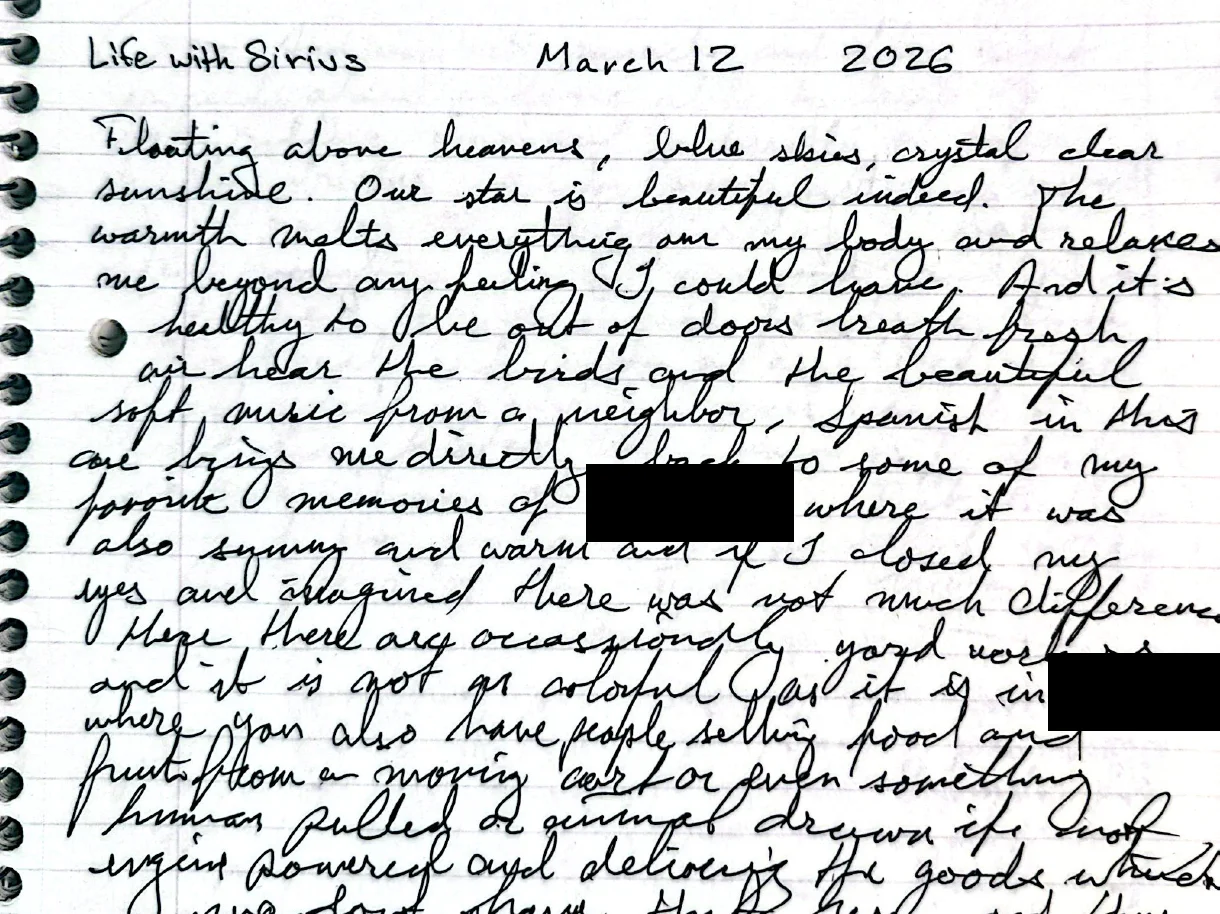 Life with Sirius March 12 2026
Floating above heavens, blue skies, crystal clear
sunshine. Our star is beautiful indeed. The
warmth melts everything on my body and relaxes
me beyond any feeling I could have. And it's
healthy to be out of doors breath fresh
air hear the birds and the beautiful
soft music from a neighbor, Spanish in this
case brings me directly back to some of my
favorite memories of where it was
also sunny and warm and if I closed my
eyes and imagined there was not much difference
Here there are occassionally yard workers
and it is not as colorful as it is in
where you also have people selling food and
fruit from a moving cart or even something
human pulled or animal drawn if not
engine powered and delivering the goods